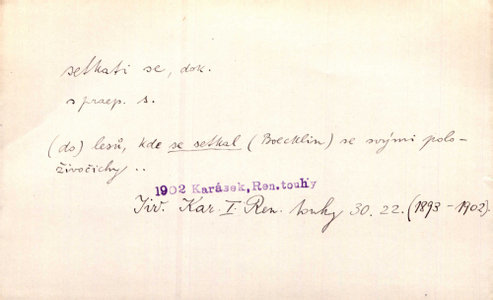 setkati se, dok.
s praep. s.
(do) lesů, kde se setkal (Boecklin) se svými polo-
živočichy ..
1902 Karásek, Ren.touhy
Jiř. Kar. I. Ren. touhy 30. 22. (1893-1902).